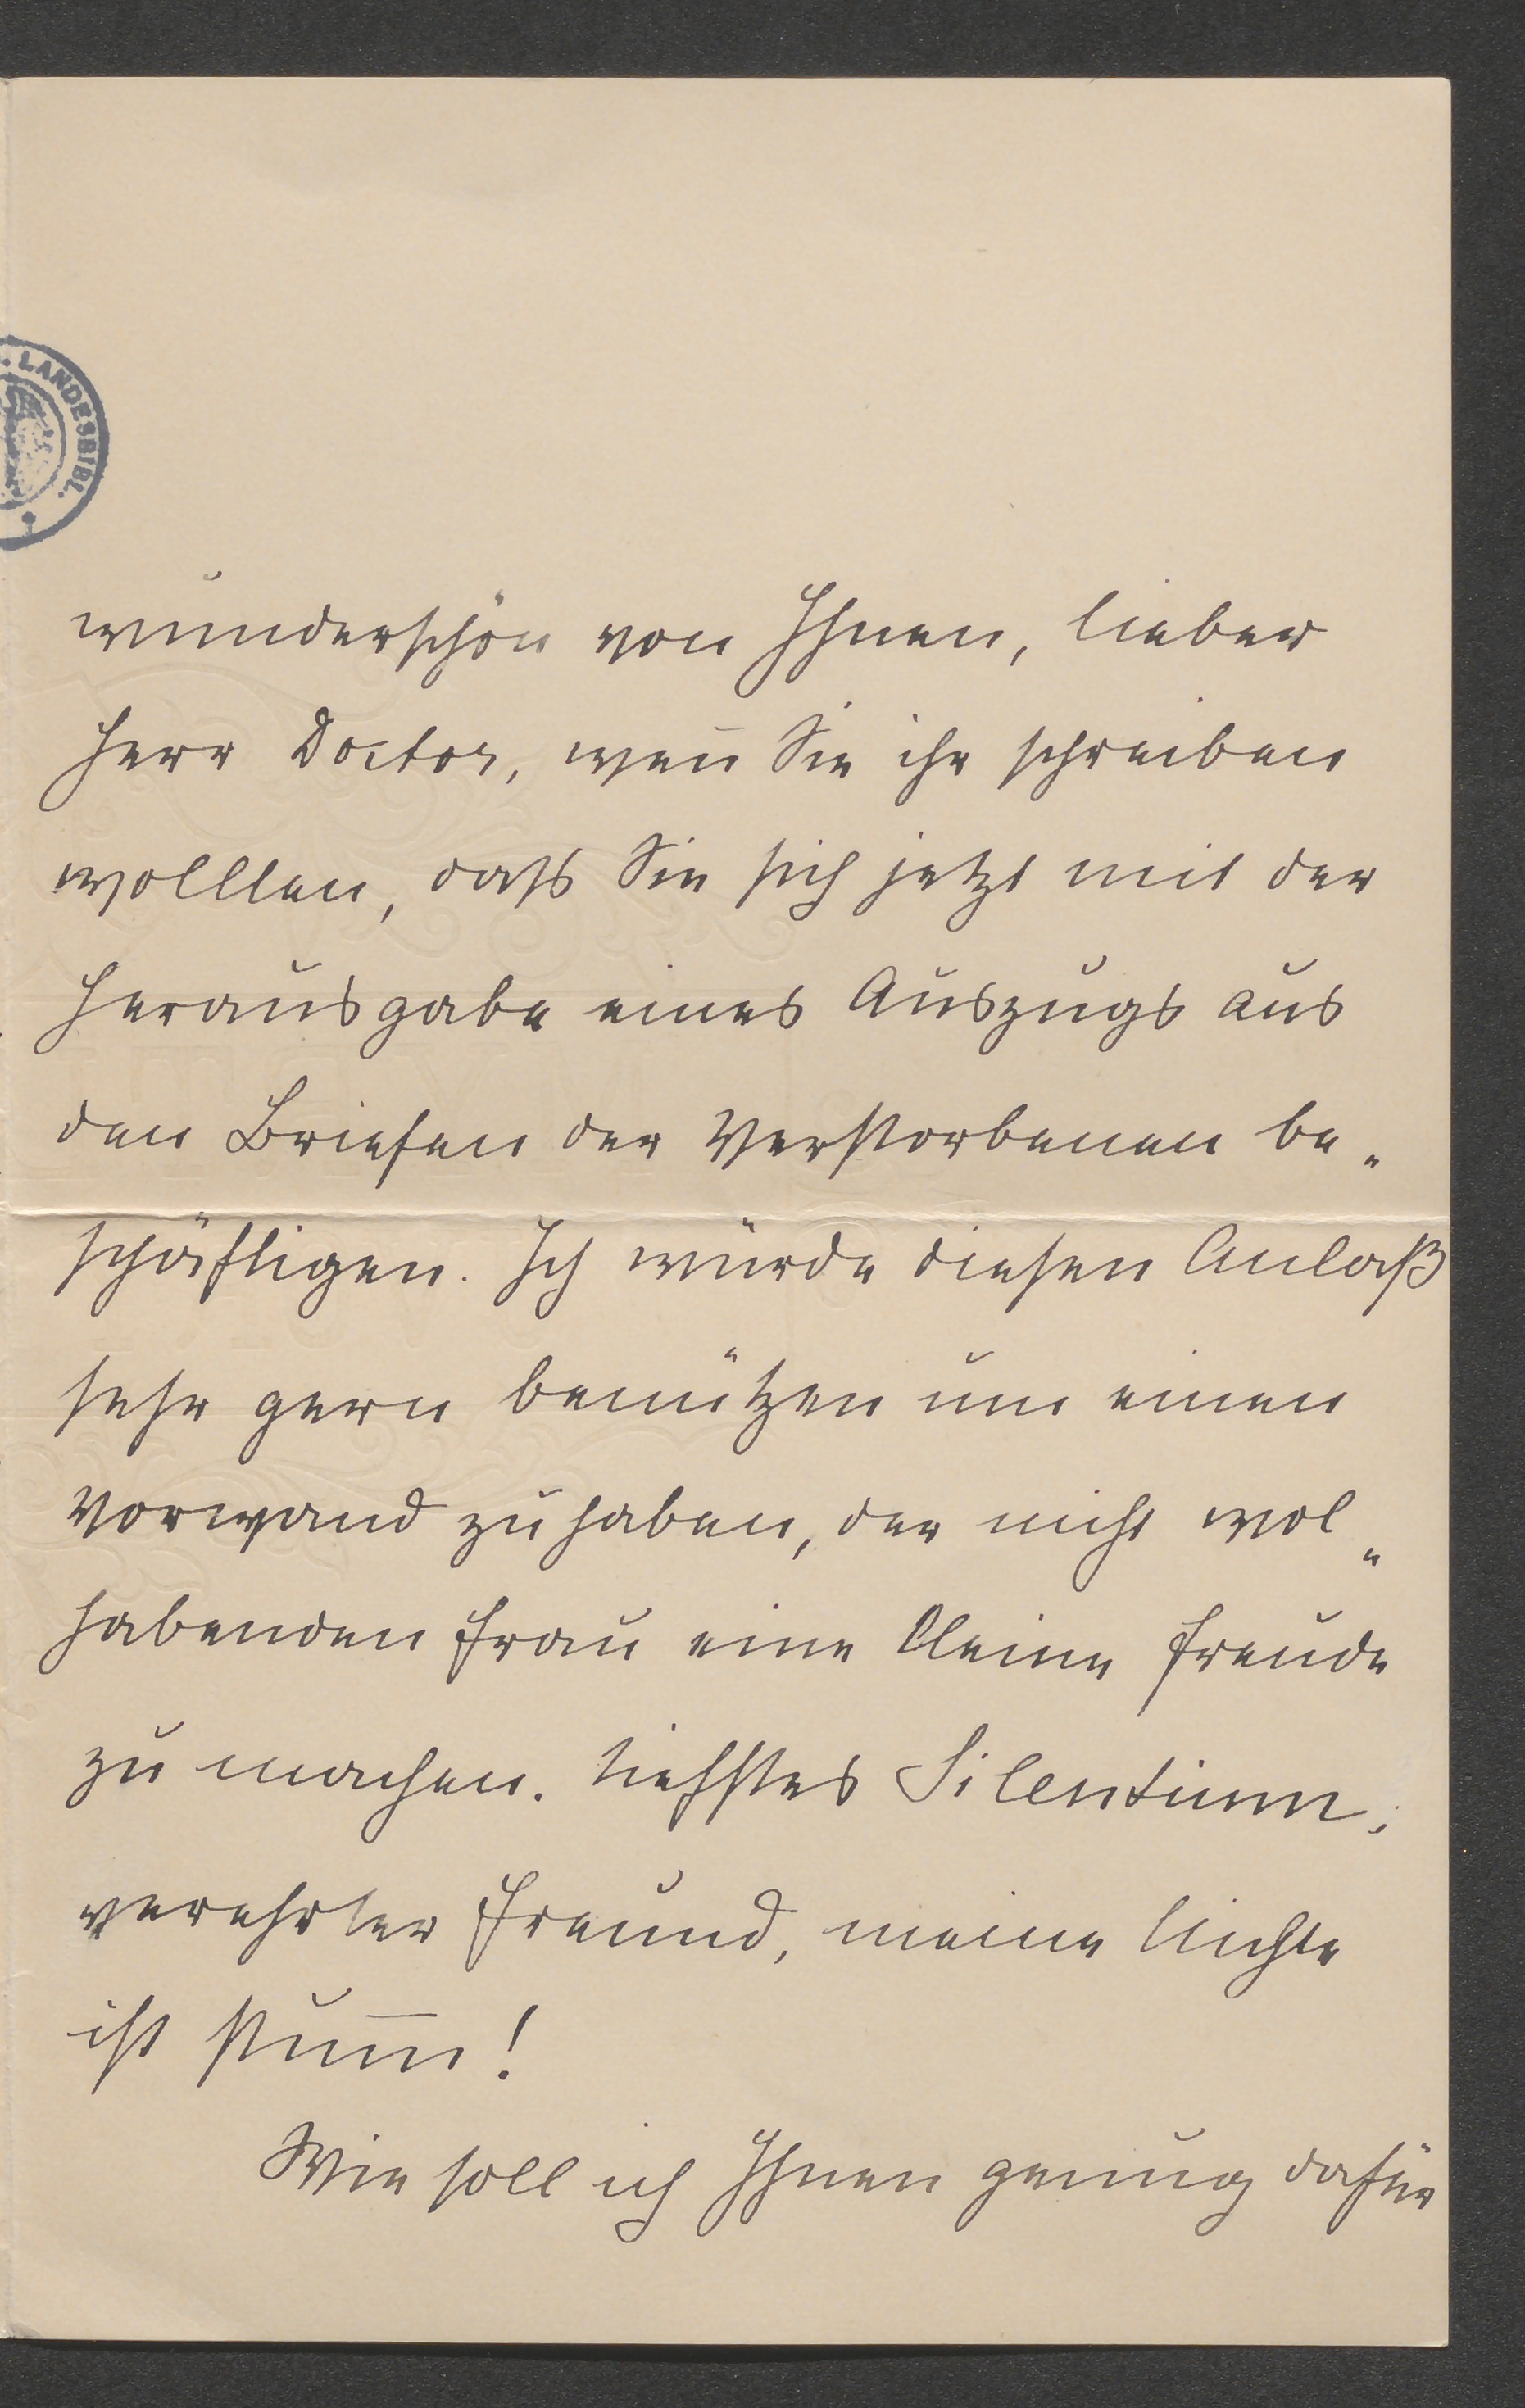 LANDESBIBL.
wunderschön von Ihnen, lieber
Herr Doctor, weñ Sie ihr schreiben
wolllen, dass Sie sich jetzt mit der
Herausgabe eines Auszugs aus
den Briefen der Verstorbenen be„
schäftigen. Ich würde diesen Anlaß
sehr gern benützen um einen
Vorwand zu haben, der nicht wol„
habenden Frau eine kleine Freude
zu machen. Tiefstes Silentium,
verehrter Freund, meine Nichte
ist stum̅!
Wie soll ich Ihnen genug dafür